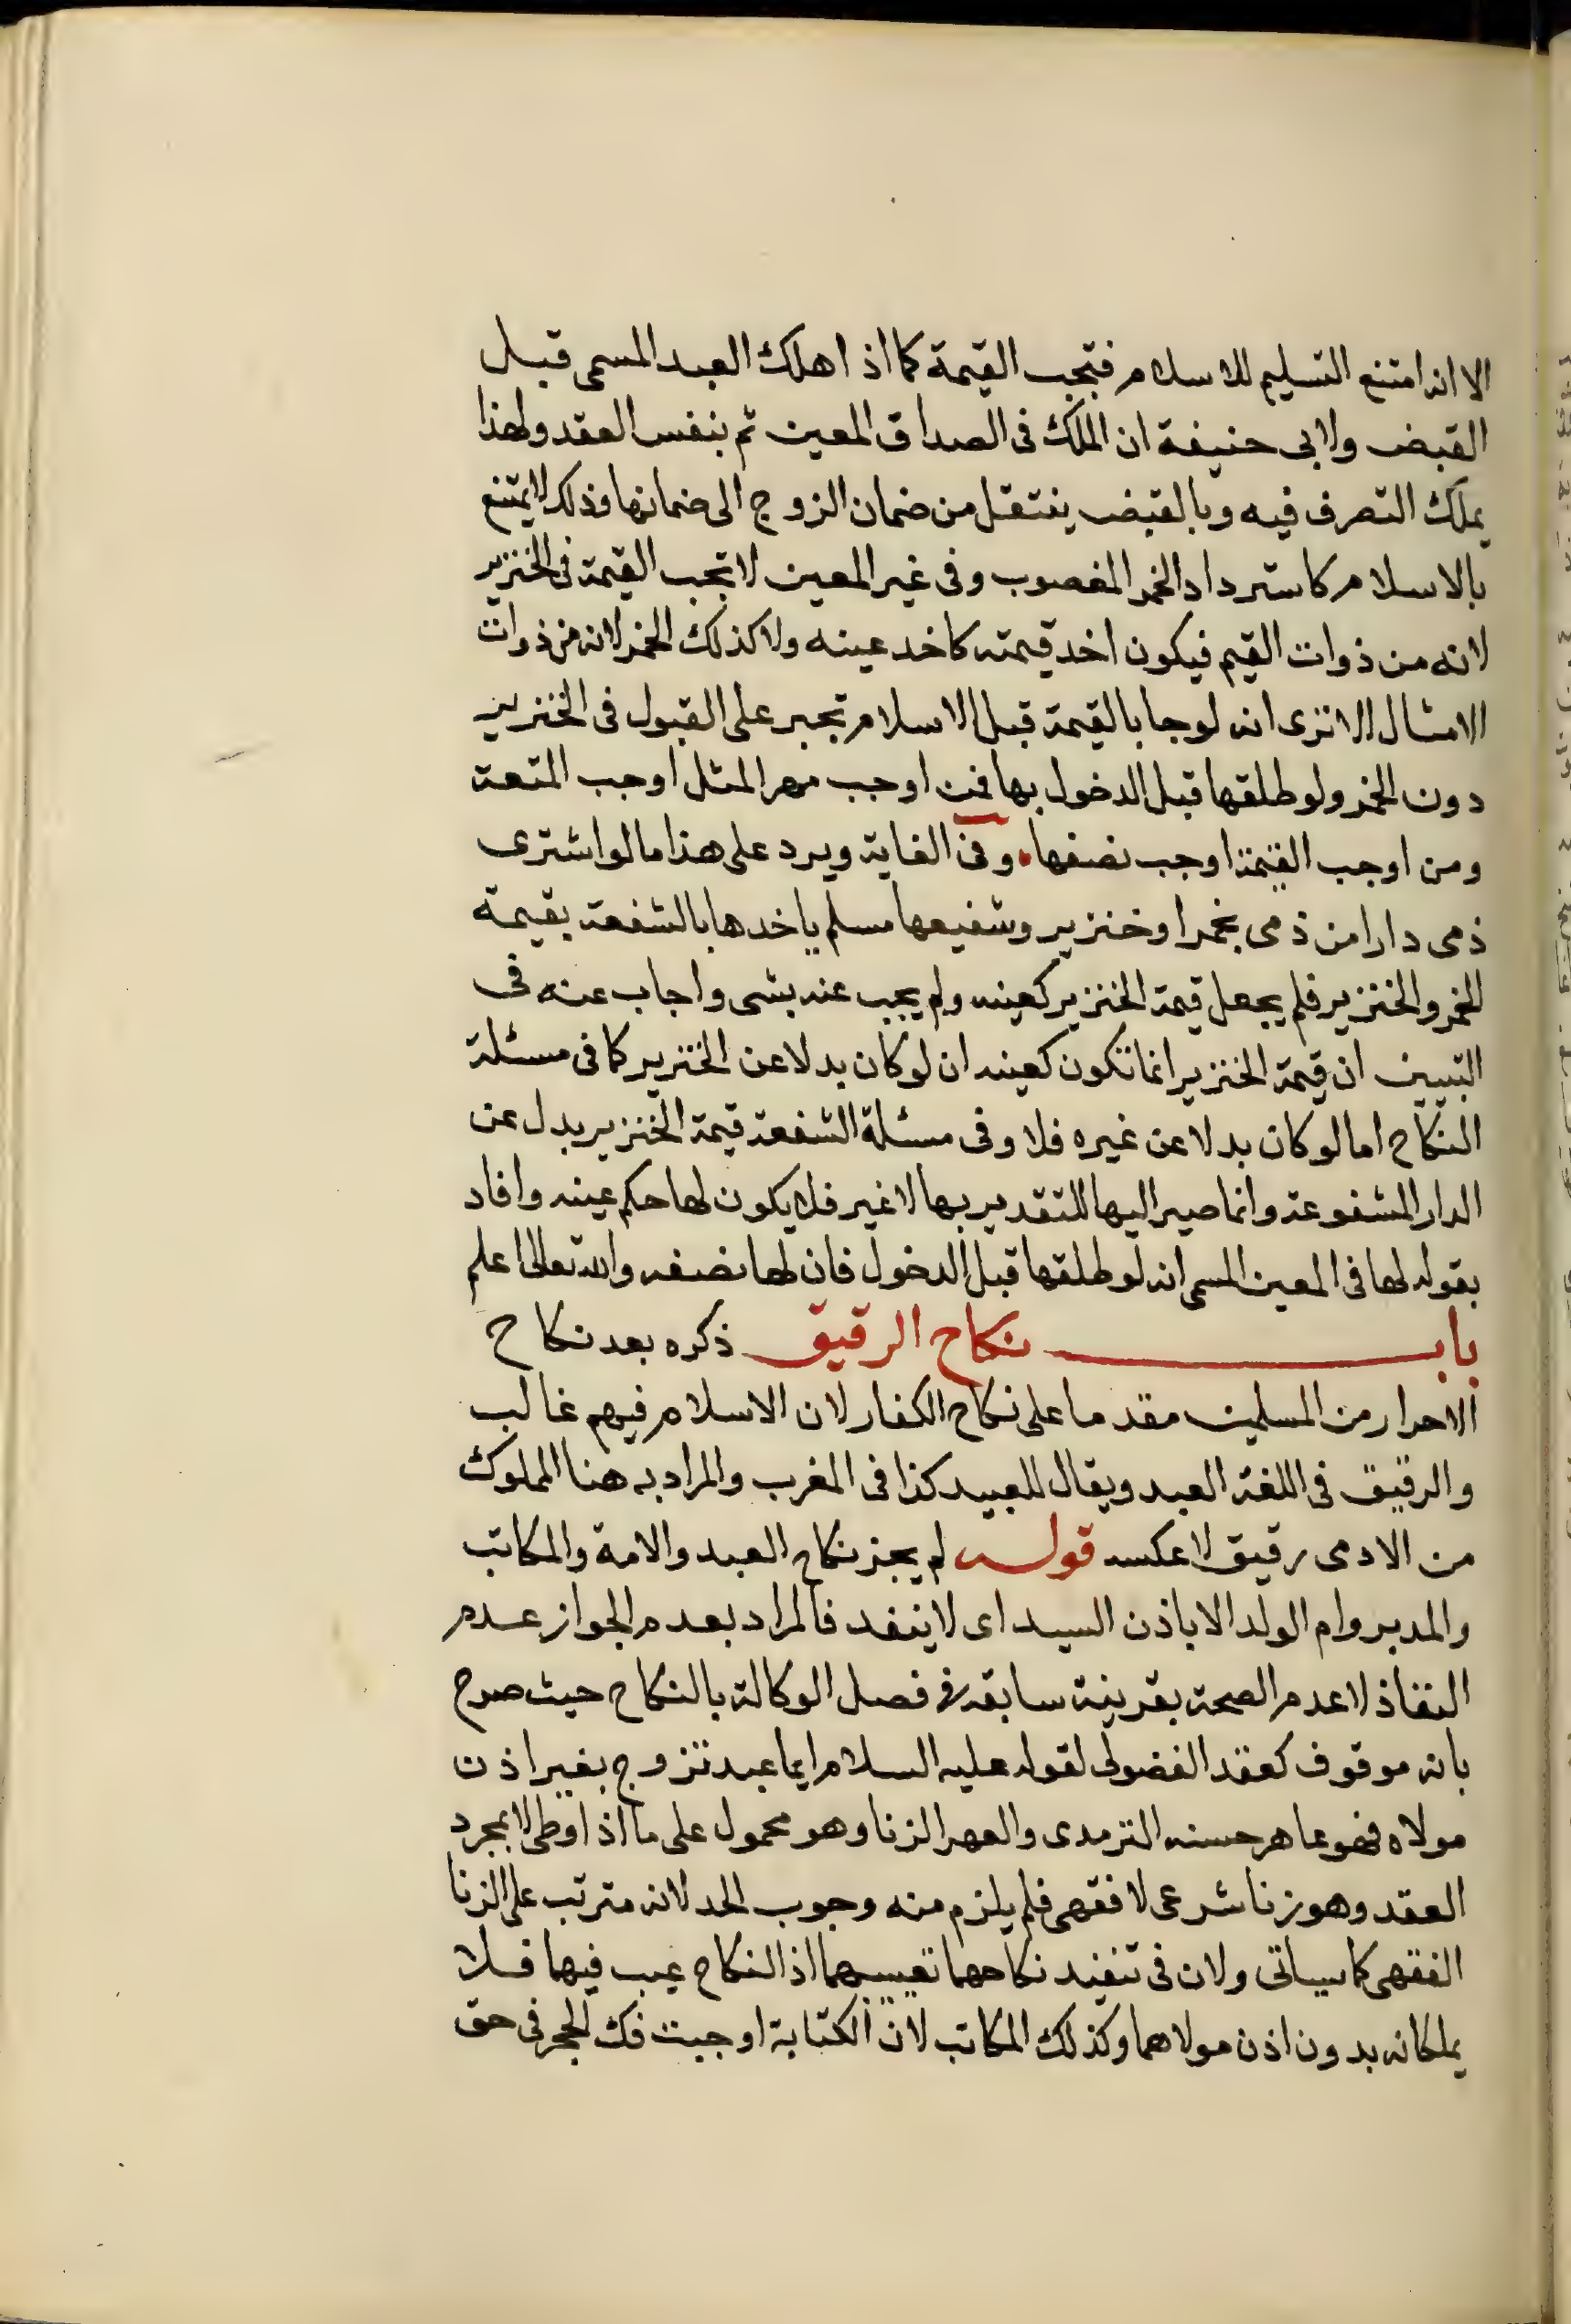 الا انه امتنع التسليم للاسلام فتجب القيمة كما اذا هلك العبد المسمى قبل
القبض ولابى حنيفة ان الملك فى الصداق المعين تم بنفس العقد ولهذا
يملك التصرف فيه وبالقبض ينتقل من ضمان الزوج الى ضمانها وذلك لا يمتنع
بالاسلام كاسترداد الخمر المغصوب وفى غير المعين لا تجب القيمة فى الخنزير
لانه من ذوات القيم فيكون اخد قيمته كاخد عينه ولا كذلك الخمر لانه من ذوات
الامثال الا ترى انه لو جا بالقيمة قبل الاسلام تجبر على القبول فى الخنزير
دون الخمر ولو طلقها قبل الدخول بها فمن اوجب مهر المثل اوجب المتعة
ومن اوجب القيمة اوجب نصفها وفى الغاية ويرد على هذا ما لو اشترى
ذمى دارا من ذمى بخمر او خنزير وشفيعها مسلم ياخدها بالشفعة بقيمة
الخمر والخنزير فلم يجعل قيمة الخنزير كعينه ولم يجب عنه بشى واجاب عنه فى
التبيين ان قيمة الخنزير انما تكون كعينه ان لو كان بدلا عن الخنزير كما فى مسئلة
النكاح اما لو كان بدلا عن غيره فلا وفى مسئلة الشفعة قيمة الخنزير بدل عن
الدار المشفوعة وانما صير اليها للتقدير بها لا غير فلا يكون لها حكم عينه وافاد
بقوله لها فى المعين المسمى انه لو طلقها قبل الدخول فان لها نصفه والله تعالى اعلم
باب نكاح الرقيق ذكره بعد نكاح
الاحرار من المسلمين مقدما على نكاح الكفار لان الاسلام فيهم غالب
والرقيق فى اللغة العبد ويقال للعبيد كذا فى المغرب والمراد به هنا المملوك
من الادمى رقيق لا عكسه قوله لم يجز نكاح العبد والامة والمكاتب
والمدبر وام الولد الا باذن السيد اى لا ينفد فالمراد بعدم الجواز عدم
النفاذ لا عدم الصحة بقرينة سابقة فى فصل الوكالة بالنكاح حيث صرح
بانه موقوف كعقد الفضولى لقوله عليه السلام ايما عبد تزوج بغير اذن
مولاه فهو عاهر حسنه الترمدى والعهر الزنا وهو محمول على ما اذا وطئ لا بمجرد
العقد وهو زنا شرعى لا فقهى فلم يلزم منه وجوب الحد لانه مترتب على الزنا
الفقهى كما سياتى ولان فى تنفيد نكاحهما تعييبهما اذ النكاح عيب فيهما فلا
يملكانه بدون اذن مولاهما وكذلك المكاتب لان الكتابة اوجبت فك الحجر فى حق